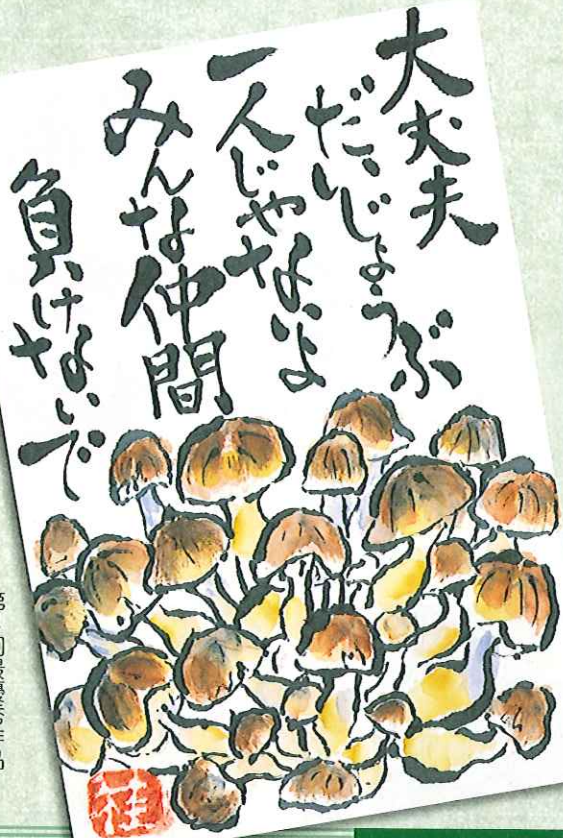 大丈夫
だいじょうぶ
一人じゃないよ
みんな仲間
負けないで
桂